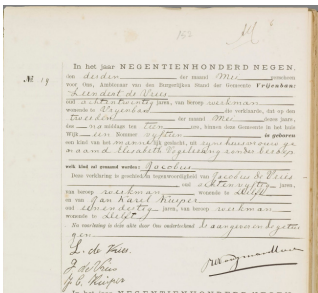 182
In het jaar NEGENTIENHONDERD NEGEN.
den derden der maand Mei verscheen
No. 19
voor Ons, Ambtenaar van den Burgerlijken Stand der Gemeente Vrijenban:
Leendert de Vries
oud achtentwintig jaren, van beroep werkman
wonende te Vrijenban, die verklaarde, dat op den
tweeden der maand Mei dezes jaars,
des middags ten een ure, binnen deze Gemeente in het huis
Wijk een Nommer vijftien is geboren
een kind van het mannelijk geslacht, uit zijne huisvrouw ge
naamd Elisabeth zonder beroep
welk kind zal genaamd worden: Jacobus
Deze verklaring is geschied in tegenwoordigheid van Jacobus de Vries
oud achtenvijftig jaren,
van beroep werkman wonende te Delft
en van Jan Karel Kuiper
oud eenendertig jaren, van beroep werkman
wonende te Delft
Na voorlezing is deze akte door Ons onderteekend de aangever en de getui
gen
L. de Vries.
J de Vries
J C Kuiper
In het jaar NEGENTIENHONDERD NEGEN